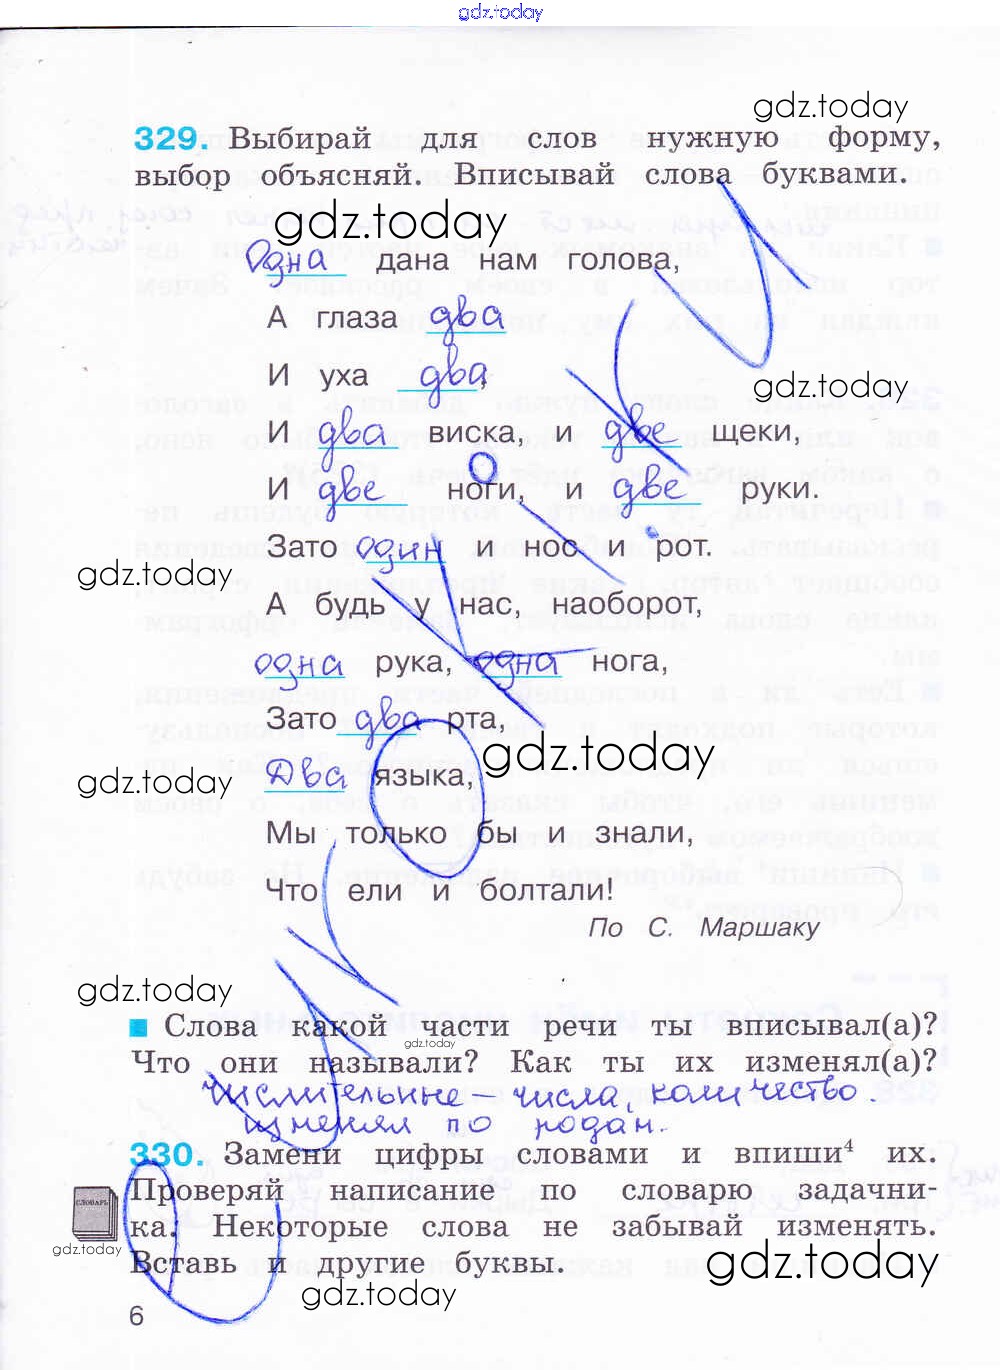 gdz.today
gdz.today
329. Выбирай для слов нужную форму,
выбор объясняй. Вписывай слова буквами.
gdz.today
Одна дана нам голова,
А глаза два
И уха два,
gdz.today
И два виска, и две щеки,
И две ноги, и две руки.
Зато один и нос и рот.
gdz.today
А будь у нас, наоборот,
одна рука, одна нога,
Зато два рта,
gdz.today
Два языка,
gdz.today
Мы только бы и знали,
Что ели и болтали!
По С. Маршаку
gdz.today
Слова какой части речи ты вписывал(а)?
gdz.today
Что они называли? Как ты их изменял(а)?
числительные – числа, количество.
изменял по родам.
330. Замени цифры словами и впиши⁴ их.
Проверяй написание по словарю задачни-
СЛОВАРЬ
ка. Некоторые слова не забывай изменять.
gdz.today
Вставь и другие буквы.
gdz.today
gdz.today
6